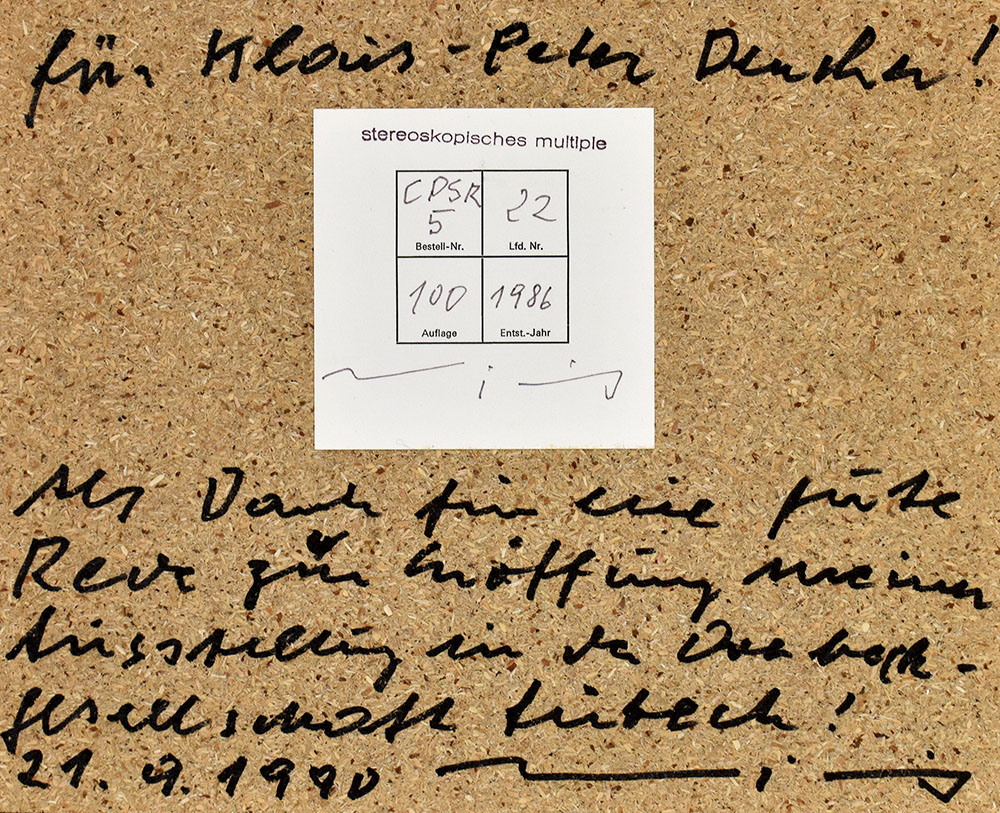 für Klaus-Peter Dencker!
stereoskopisches multiple
CPSR 22
5
Bestell-Nr. Lfd. Nr.
100 1986
Auflage Entst.-Jahr
Als Dank für eine gute
Rede zur Eröffnung meiner
Ausstellung in der Overbeck-
gesellschaft Lübeck!
21.9.1990